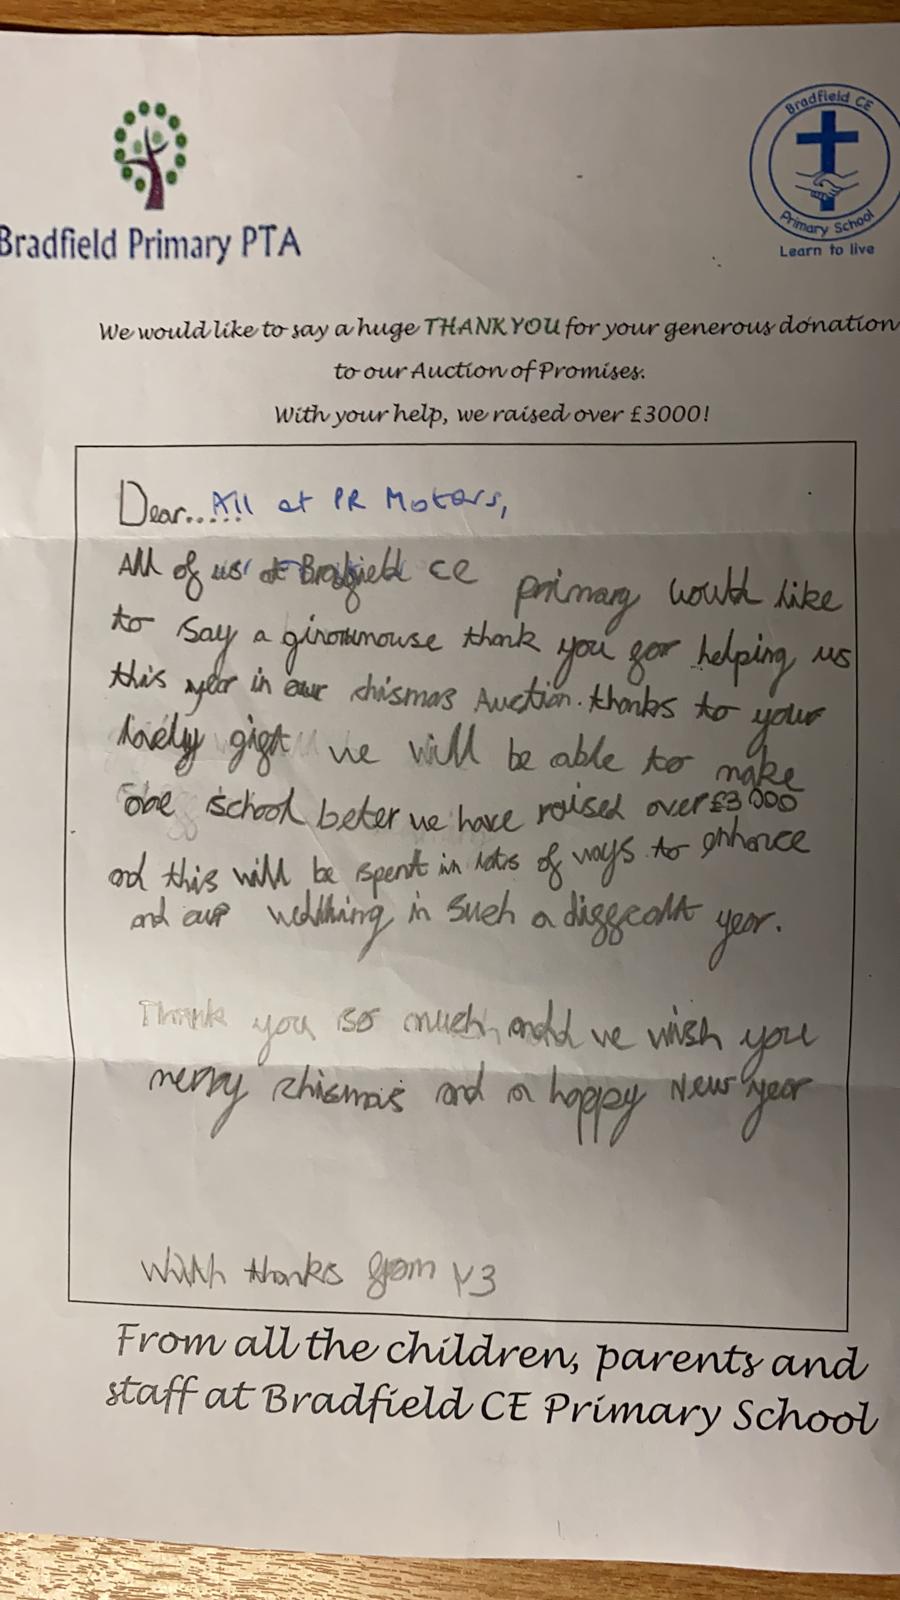 Bradfield Primary PTA
Bradfield CE
Primary School
Learn to live
We would like to say a huge THANK YOU for your generous donation
to our Auction of Promises.
With your help, we raised over £3000!
Dear...... All at PR Motors,
All of us at Bradfield CE primary would like
to say a ginormouse thank you for helping us
this year in our chismas Auction. thanks to your
lovely gift we will be able to make
school beter we have raised over £3000
ad this will be spent in lots of ways to enhance
and our wellbing in such a diffecalt year.
Thank you so much and we wish you
merry chismas and a happy New year
With thanks from Y3
From all the children, parents and
staff at Bradfield CE Primary School